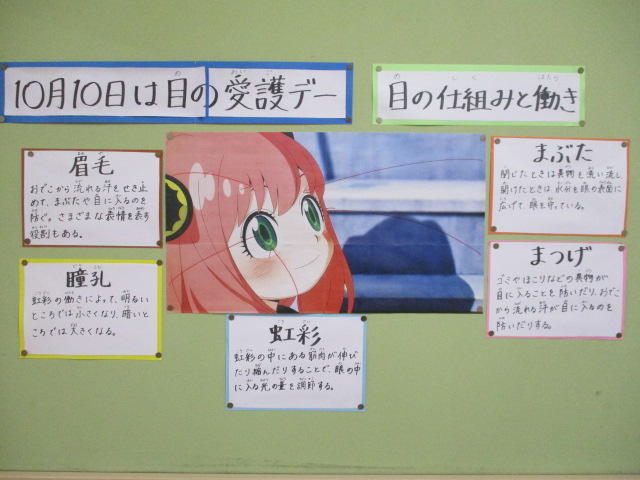 10月10日は目の愛護デー
目の仕組みと働き
眉毛
おでこから流れる汗をせき止
めて、まぶたや目に入るのを
防ぐ。さまざまな表情を表す
役割もある。
瞳孔
虹彩の働きによって、明るい
ところでは小さくなり、暗いと
ころでは大きくなる。
虹彩
虹彩の中にある筋肉が伸び
たり縮んだりすることで、眼の中
に入る光の量を調節する。
まぶた
閉じたときは異物を洗い流し
開けたときは水分を眼の表面に
広げて、眼を守っている。
まつげ
ゴミやほこりなどの異物が
目に入ることを防いだり、おでこ
から流れる汗が目に入るのを
防いだりする。